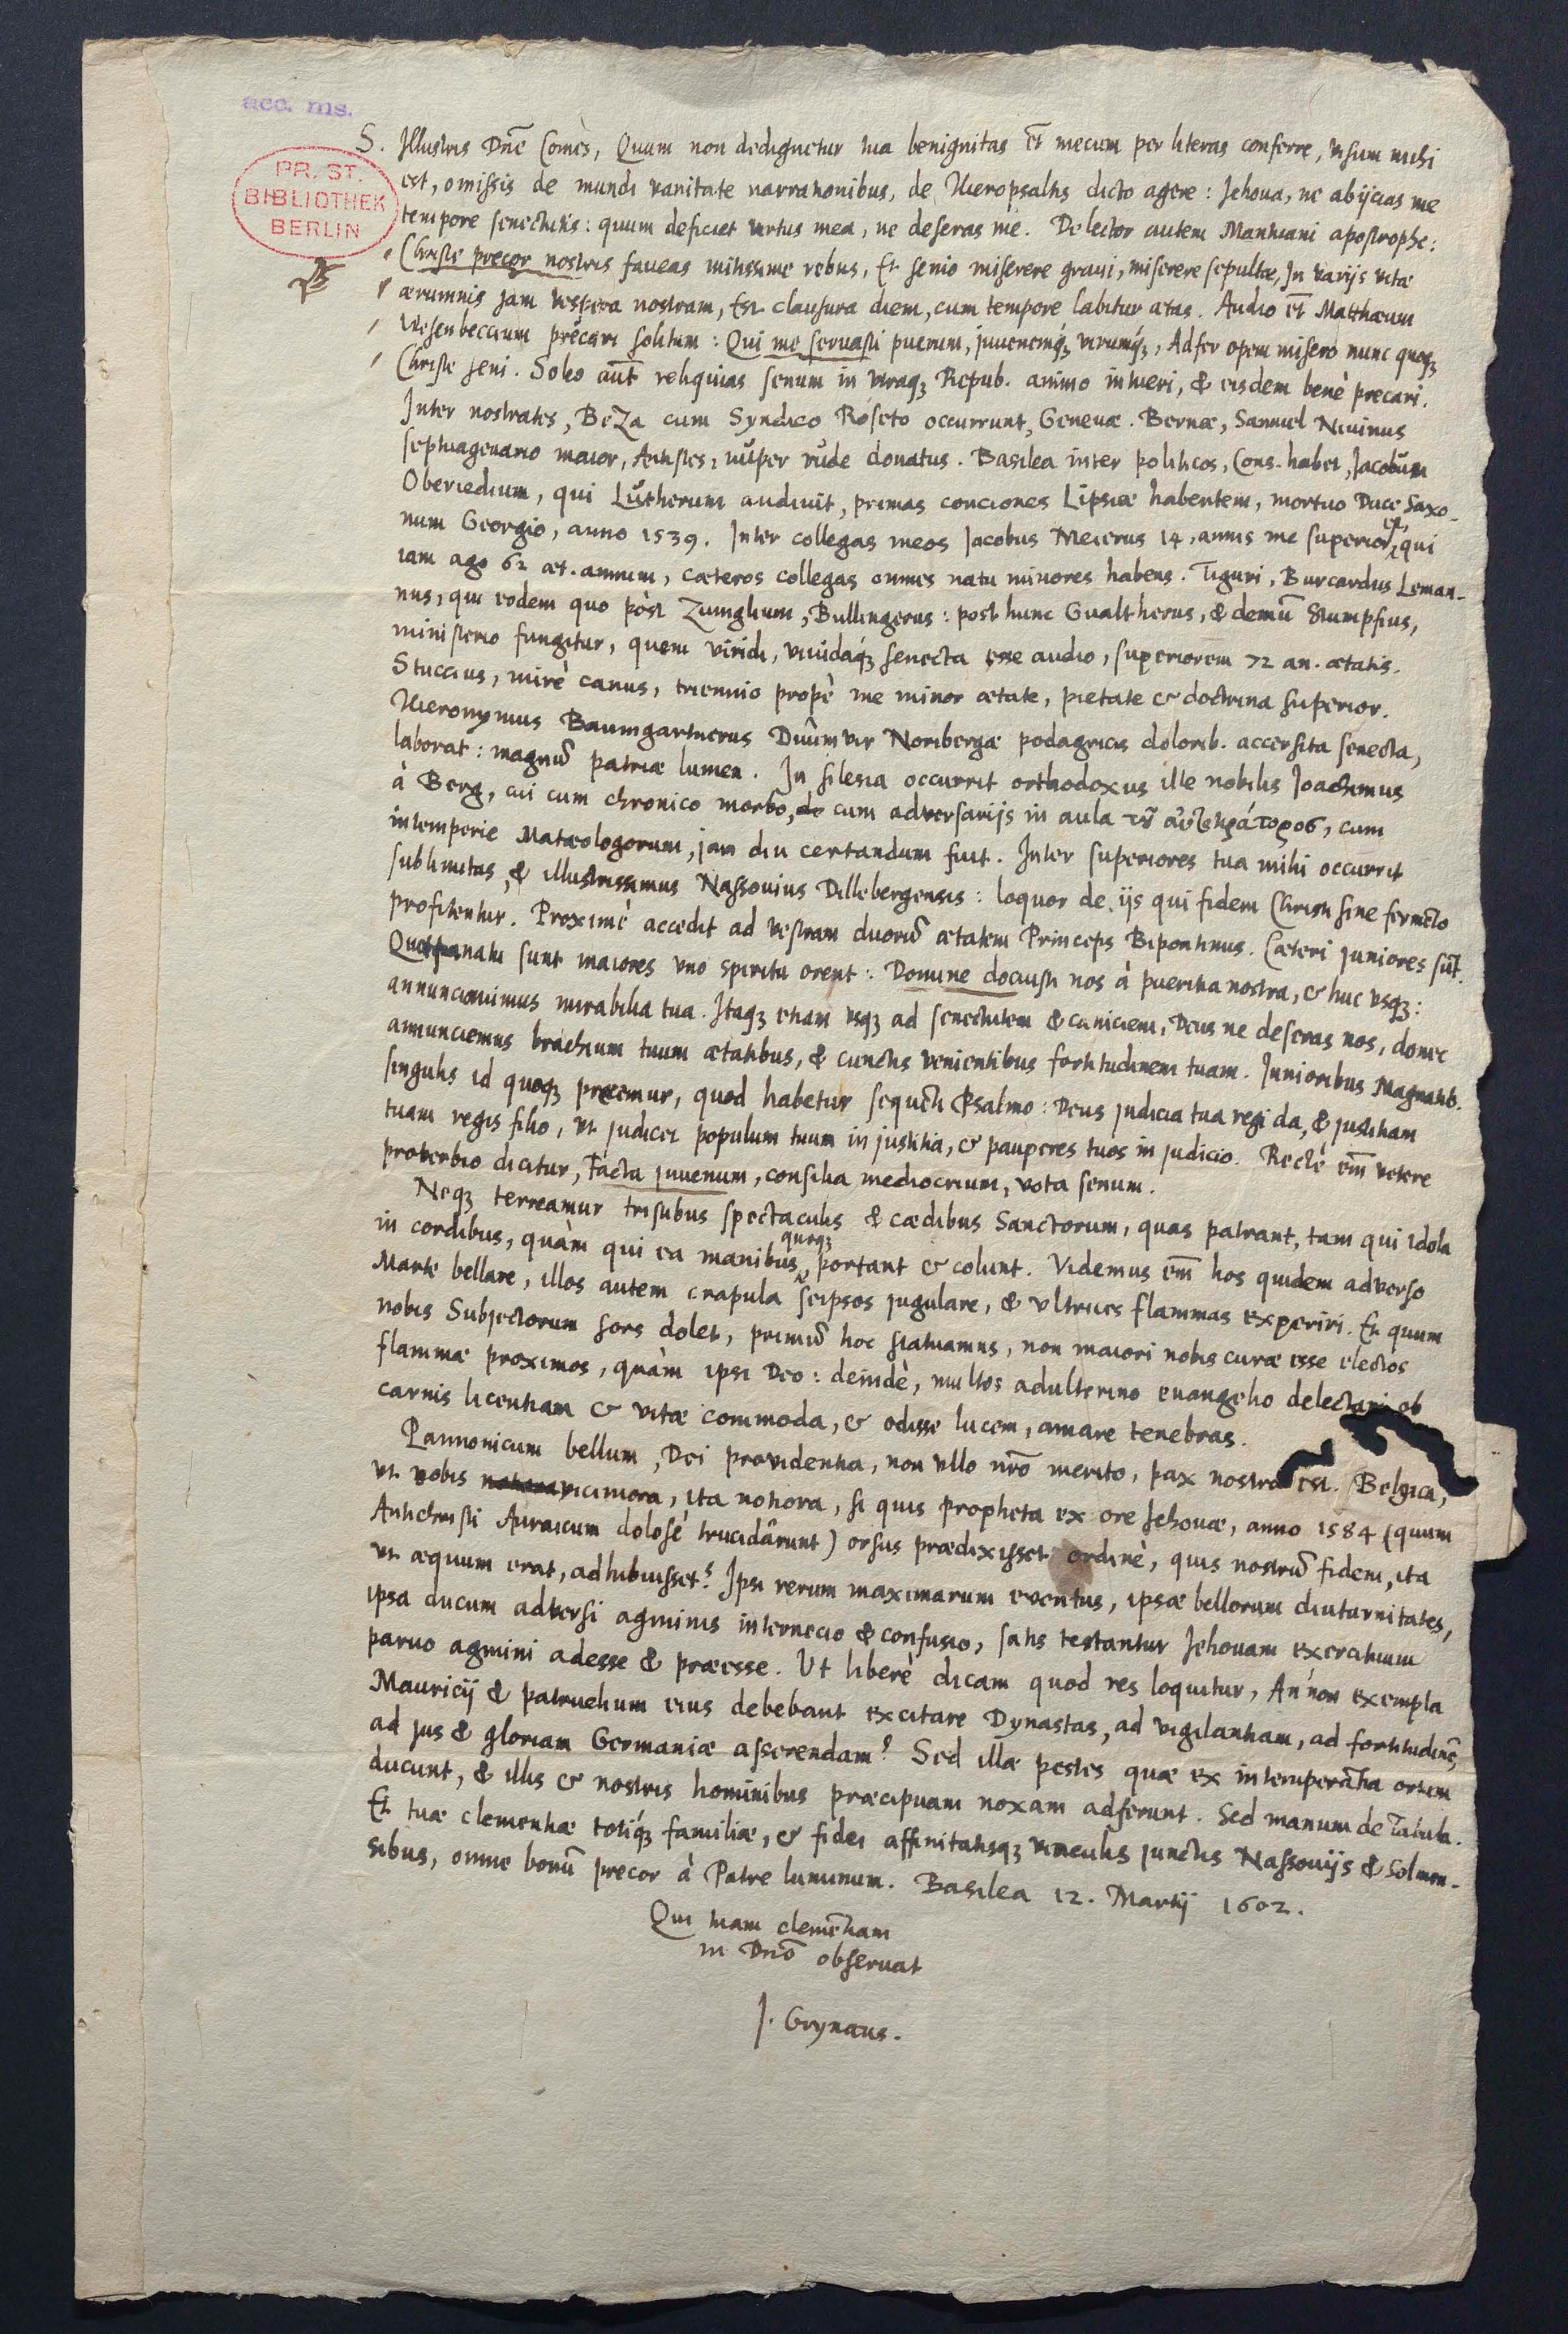 acc. ms.
PR. ST.
BIBLIOTHEK
BERLIN
S. Illustris Dn̄e Comes, Quum non dedignetur tua benignitas et mecum per literas conferre, visum mihi
est, omissis de mundi vanitate narrationibus, de Hieropsaltis dicto agere: Jehova, ne abijcias me
tempore senectutis: quum deficiet virtus mea, ne deseras me. Delector autem Mantuani apostrophe:
Christe precor nostris faveas mitissime rebus, Et senio miserere gravi, miserere sepultæ, In varijs vitæ
ærumnis jam vespera nostram, Est clausura diem, cum tempore labitur ætas. Audio et Matthæum
Wesenbeccium precari solitum: Qui me servasti puerum, juvenemq́ꝫ virumq́ꝫ, Adfer opem misero nunc quoqꝫ
Christe seni. Soleo aut̄ reliquias senum in utraqꝫ Repub. animo intueri, & eisdem benè precari.
Inter nostrates, BeZa cum Syndico Roseto occurrunt, Genevæ. Bernæ, Samuel
septuagenario maior, Antistes, nuper rude donatus. Basilea inter politicos, Cons. habet, Jacobum
Oberiedium, qui Lutherum audivit, primas conciones Lipsiæ habentem, mortuo Duce Saxo-
num Georgio, anno 1539. Inter collegas meos Jacobus Meierus 14, annis me superior est, qui
iam ago 62 æt. annum, cæteros collegas omnes natu minores habens. Tiguri, Burcardus Leman-
nus, qui eodem quo pòst Zuinglium, Bullingerus: post hunc Gualtherus, & demū Stumpfius,
ministerio fungitur, quem viridi, vividaq́ꝫ senecta esse audio, superiorem 72 an. ætatis.
Stuccius, mirè canus, triennio propè me minor ætate, pietate & doctrina superior.
Hieronymus Baumgartnerus Duûmvir Noribergæ podagricis dolorib. accersita senecta,
laborat: magnū patriæ lumen. In Silesia occurrit orthodoxus ille nobilis Joachimus
à Berg, cui cum chronico morbo, de cum adversarijs in aula τȣ̃ αὐτοκράτορος, cum
intemperie Matæologorum, jam diu certandum fuit. Inter superiores tua mihi occurrit
sublimitas, & illustrissimus Nassovius Dillebergensis: loquor de ijs qui fidem Christi sine fermēto
profitentur. Proximè accedit ad vestram duorū ætatem Princeps Bipontinus. Cæteri juniores sūt.
Qui natu sunt maiores uno spiritu orent: Domine docuisti nos à pueritia nostra, & huc usqꝫ:
annunciavimus mirabilia tua. Itaqꝫ etiam usqꝫ ad senectutem & caniciem, Deus ne deseras nos, donec
annunciemus brachium tuum ætatibus, & cunctis venientibus fortitudinem tuam. Junioribus Magnatib.
singulis id quoqꝫ precemur, quod habetur sequēti Psalmo: Deus judicia tua regi da, & justitiam
tuam regis filio, ut judicet populum tuum in justitia, & pauperes tuos in judicio. Rectè em̄ vetere
proverbio dicitur, Facta juvenum, consilia mediocrium, vota senum.
Neqꝫ terreamur tristibus spectaculis & cædibus Sanctorum, quas patrant, tam qui idola
in cordibus, quàm qui ea manibus quoqꝫ portant & colunt. Videmus em̄ hos quidem adverso
Marte bellare, illos autem crapula seipsos jugulare, & ultrices flammas experiri. Et quum
nobis Subjectorum sors dolet, primū hoc statuamus, non maiori nobis curæ esse electos
flammæ proximos, quàm ipsi Deo: deindè, multos adulterino evangelio delectari ob
carnis licentiam & vitæ commoda, & odisse lucem, amare tenebras.
Pannonicum bellum, Dei providentia, non ullo nr̄o merito, pax nostra est. Belgica,
ut vobis viciniora, ita notiora, si quis propheta ex ore Jehovæ, anno 1584 (quum
Antichristi Auraicum dolosè trucidârunt) orsus prædixisset ordine, quis nostrū fidem, ita
ut æquum erat, adhibuisset? Ipsi rerum maximarum eventus, ipsæ bellorum diuturnitates,
ipsa ducum adversi agminis internecio & confusio, satis testantur Jehovam exercituum
parvo agmini adesse & præesse. Ut liberè dicam quod res loquitur, An non exempla
Mauricij & patruelium eius debebant excitare Dynastas, ad vigilantiam, ad fortitudinē,
ad jus & gloriam Germaniæ asserendam? Sed illæ pestes quæ ex intemperātia ortum
ducunt, & illis & nostris hominibus præcipuam noxam adferunt. Sed manum de Tabula.
Et tuæ clementiæ totiq́ꝫ familiæ, & fidei affinitatisqꝫ vinculis junctis Nassovijs & Solmen-
sibus, omne bonū precor à Patre luminum. Basilea 12. Martij 1602.
Qui tuam clemētiam
in Dn̄o observat
J. Grynæus.